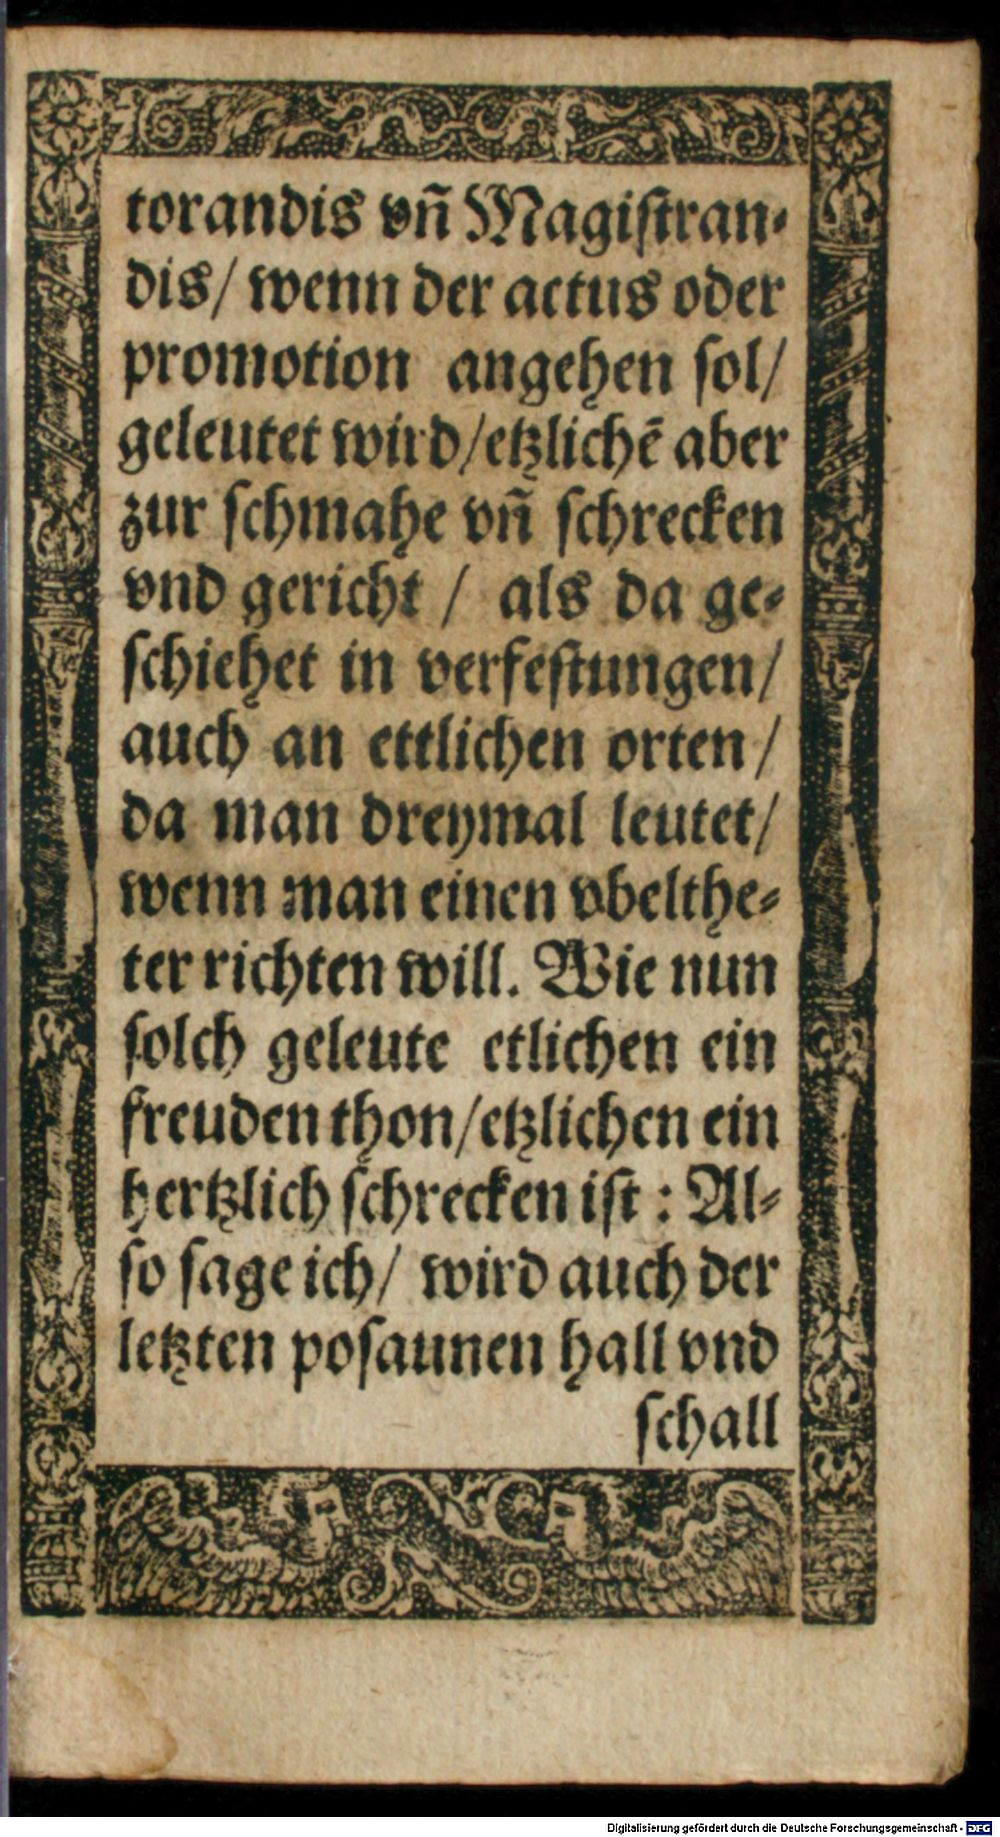 torandis vñ Magiſtran⸗
dis/ wenn der actus oder
promotion angehen ſol/
geleutet wird/etzlichẽ aber
zur ſchmahe vñ ſchrecken
vnd gericht / als da ge⸗
ſchiehet in verfeſtungen/
auch an ettlichen orten/
da man dreymal leutet/
wenn man einen vbelthe⸗
ter richten will. Wie nun
ſolch geleute etlichen ein
freuden thon/etzlichen ein
hertzlich ſchrecken iſt : Al⸗
ſo ſage ich/ wird auch der
letzten poſaunen hall vnd
ſchall
Digitalisierung gefördert durch die Deutsche Forschungsgemeinschaft - DFG